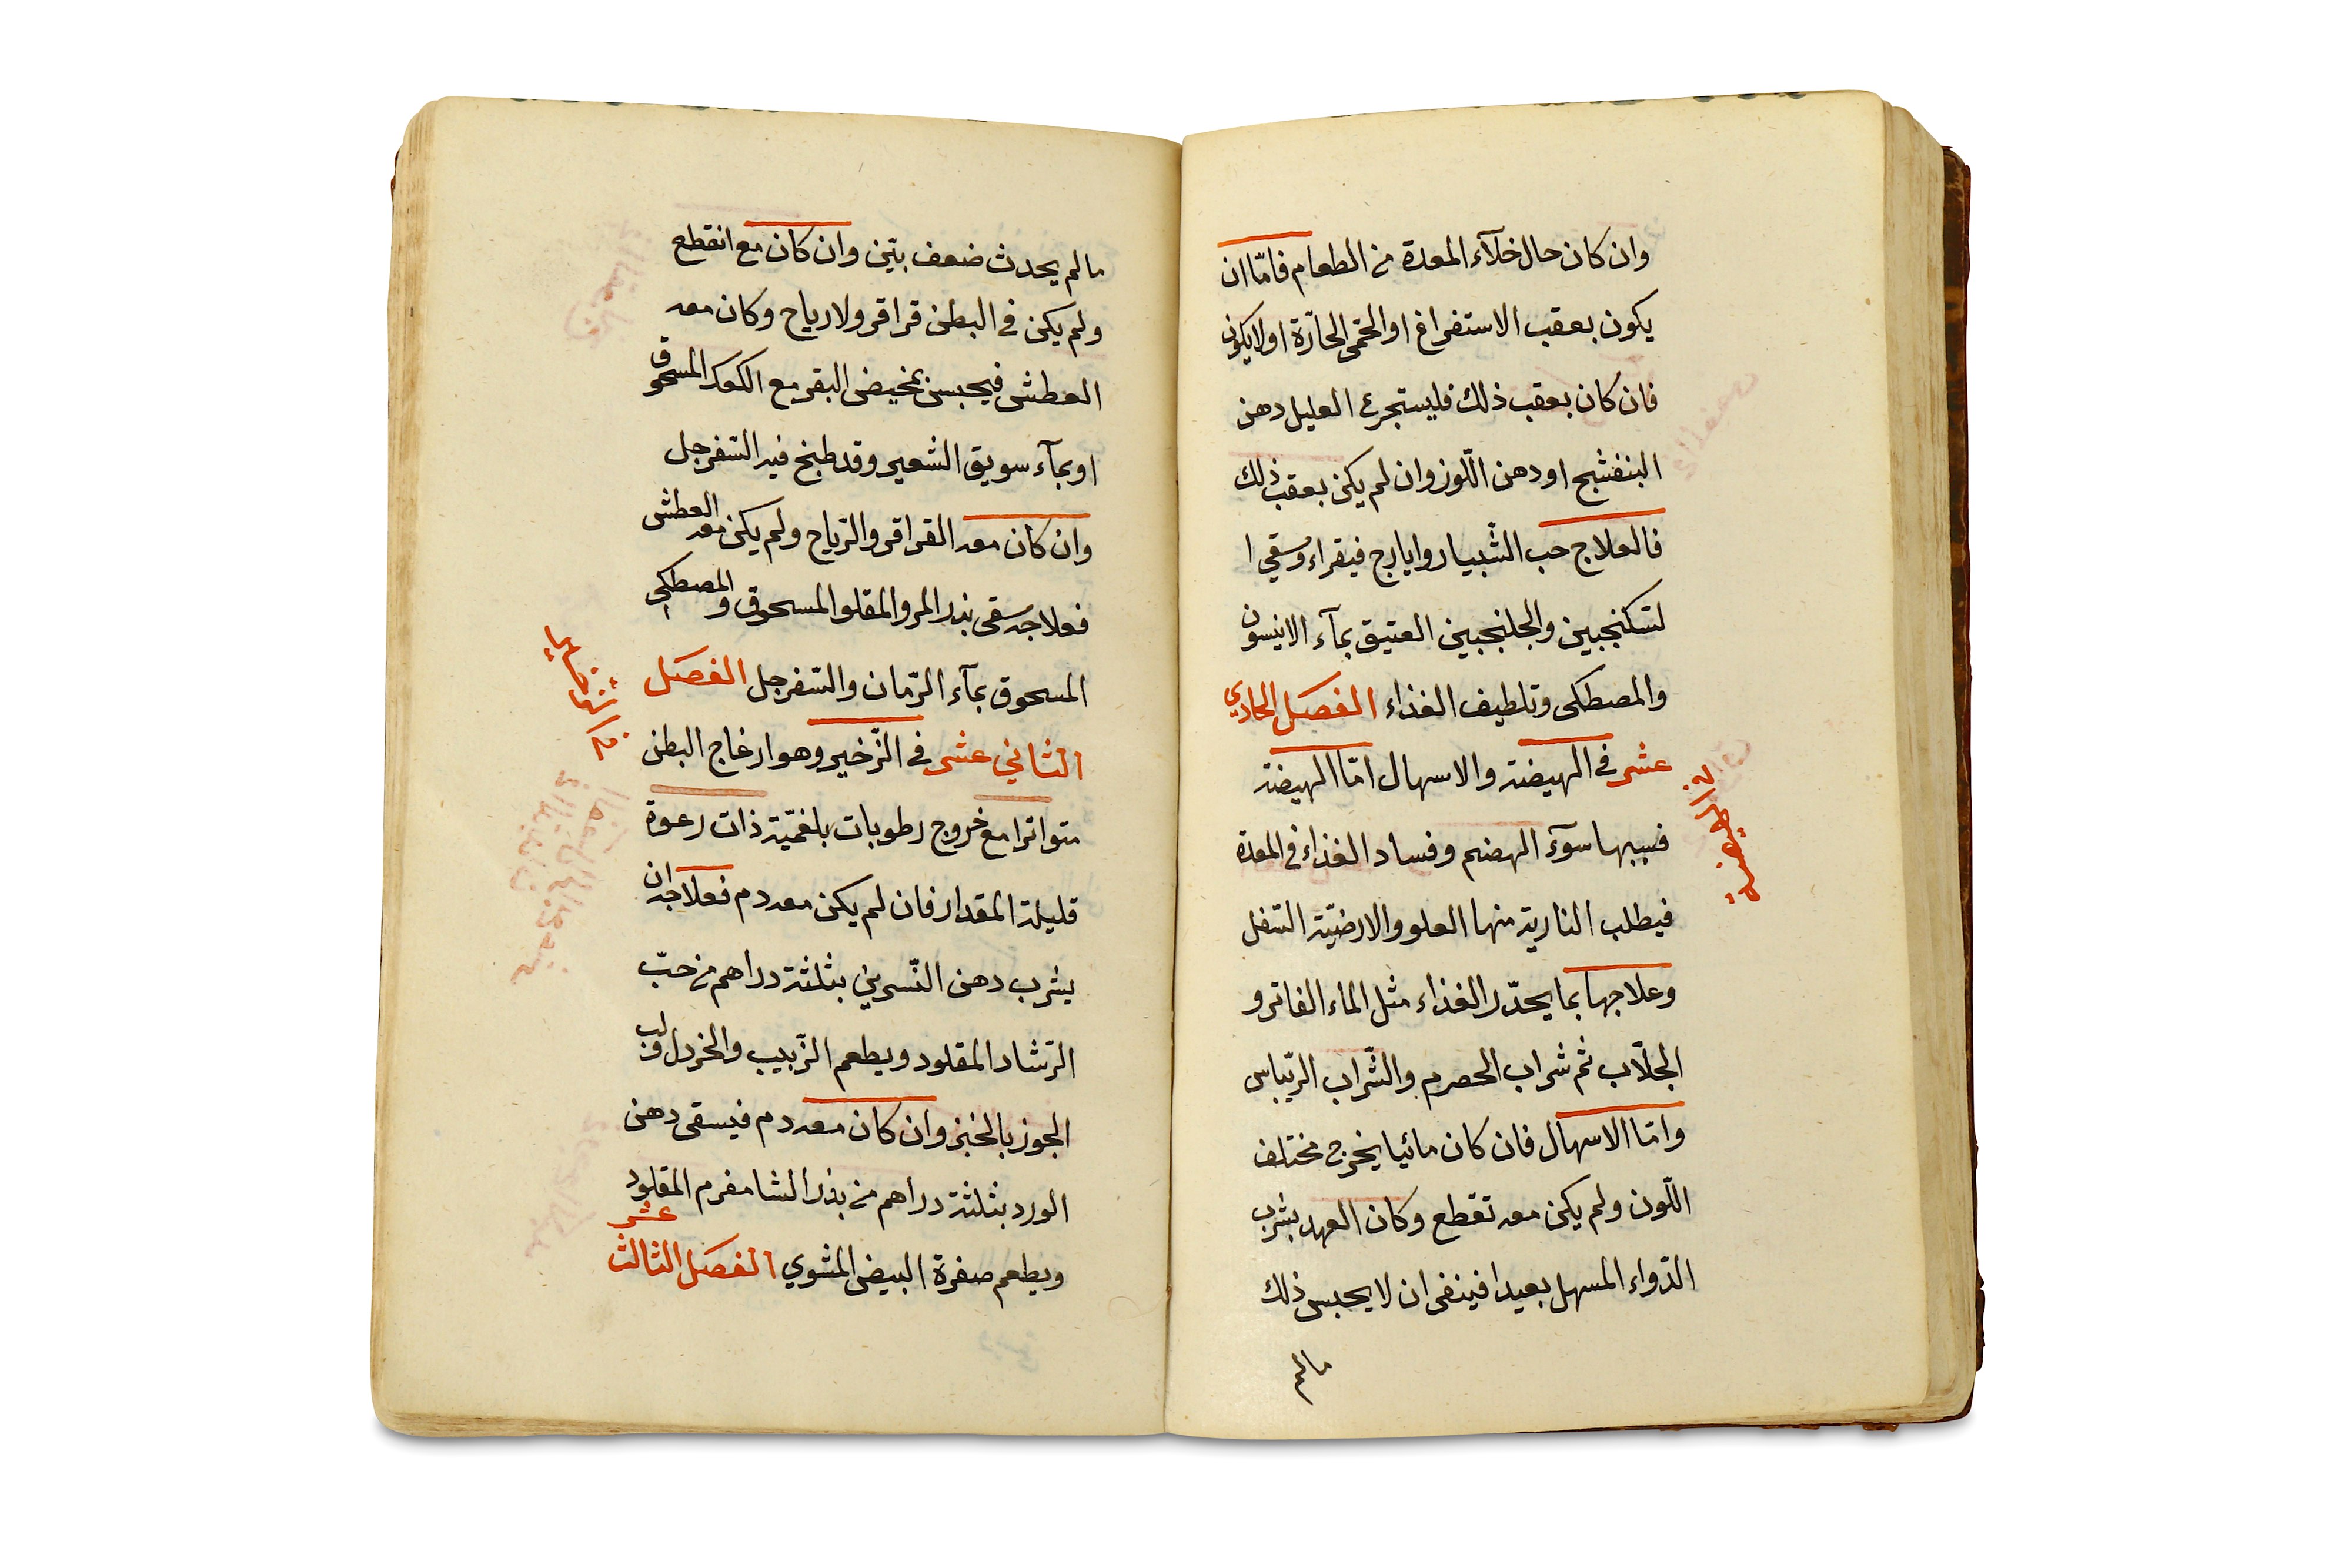 وان كان حال خلآء المعدة من الطعام فامّا ان
يكون بعقب الاستفراغ او الحمّى الحارّة او لا يكون
فان كان بعقب ذلك فليستجرع العليل دهن
البنفشج او دهن اللّوز وان لم يكن بعقب ذلك
فالعلاج حب الشّبيار وايارج فيقراء وسقي ا
لسّكنجبين والجلنجبين العتيق بمآء الانيسون
والمصطكى وتلطيف الغذاء الفصل الحادي
عشر في الهيضة والاسهال امّا الهيضة
فسببها سوآء الهضم وفساد الغذاء في المعدة
فيطلب النارية منها العلو والارضيّة السّفل
وعلاجها بما يحدّر الغذاء مثل الماء الفاتر و
الجلّاب ثم شراب الحصرم والشّراب الرّيباس
وامّا الاسهال فان كان مائيا يخرج مختلف
اللّون ولم يكن معه تقطع وكان العهد بشرب
الدّواء المسهل بعيدا فينغى ان لا يحبس ذلك
مالم
في الهيضة
مالم يحدث ضعف بيّن وان كان مع انقطع
ولم يكن في البطن قراقر ولا رياح وكان معه
العطش فيحبس بمخيض البقر مع الكعك المسحوق
او بمآء سويق الشعير وقد طبخ فيه السّفرجل
وان كان معه القراقر والرّياح ولم يكن معه العطش
فعلاجه سقى بذر المرو المقلو المسحوق والمصطكى
المسحوق بمآء الرّمان والسّفرجل الفصل
الثاني عشر في الزّخير وهو ارغاج البطن
متواترا مع خروج رطوبات بلغميّة ذات رعوة
قليلة المقدار فان لم يكن معه دم فعلاجه ان
يشرب دهن النّسرين بثلثة دراهم من حبّ
الرّشاد المقلود ويطعم الزّبيب والخردل ولب
الجوز بالخبز وان كان معه دم فيسقى دهن
الورد بثلثة دراهم من بذر الشامفرم المقلود
ويطعم صفرة البيض المشوي الفصل الثالث عشر